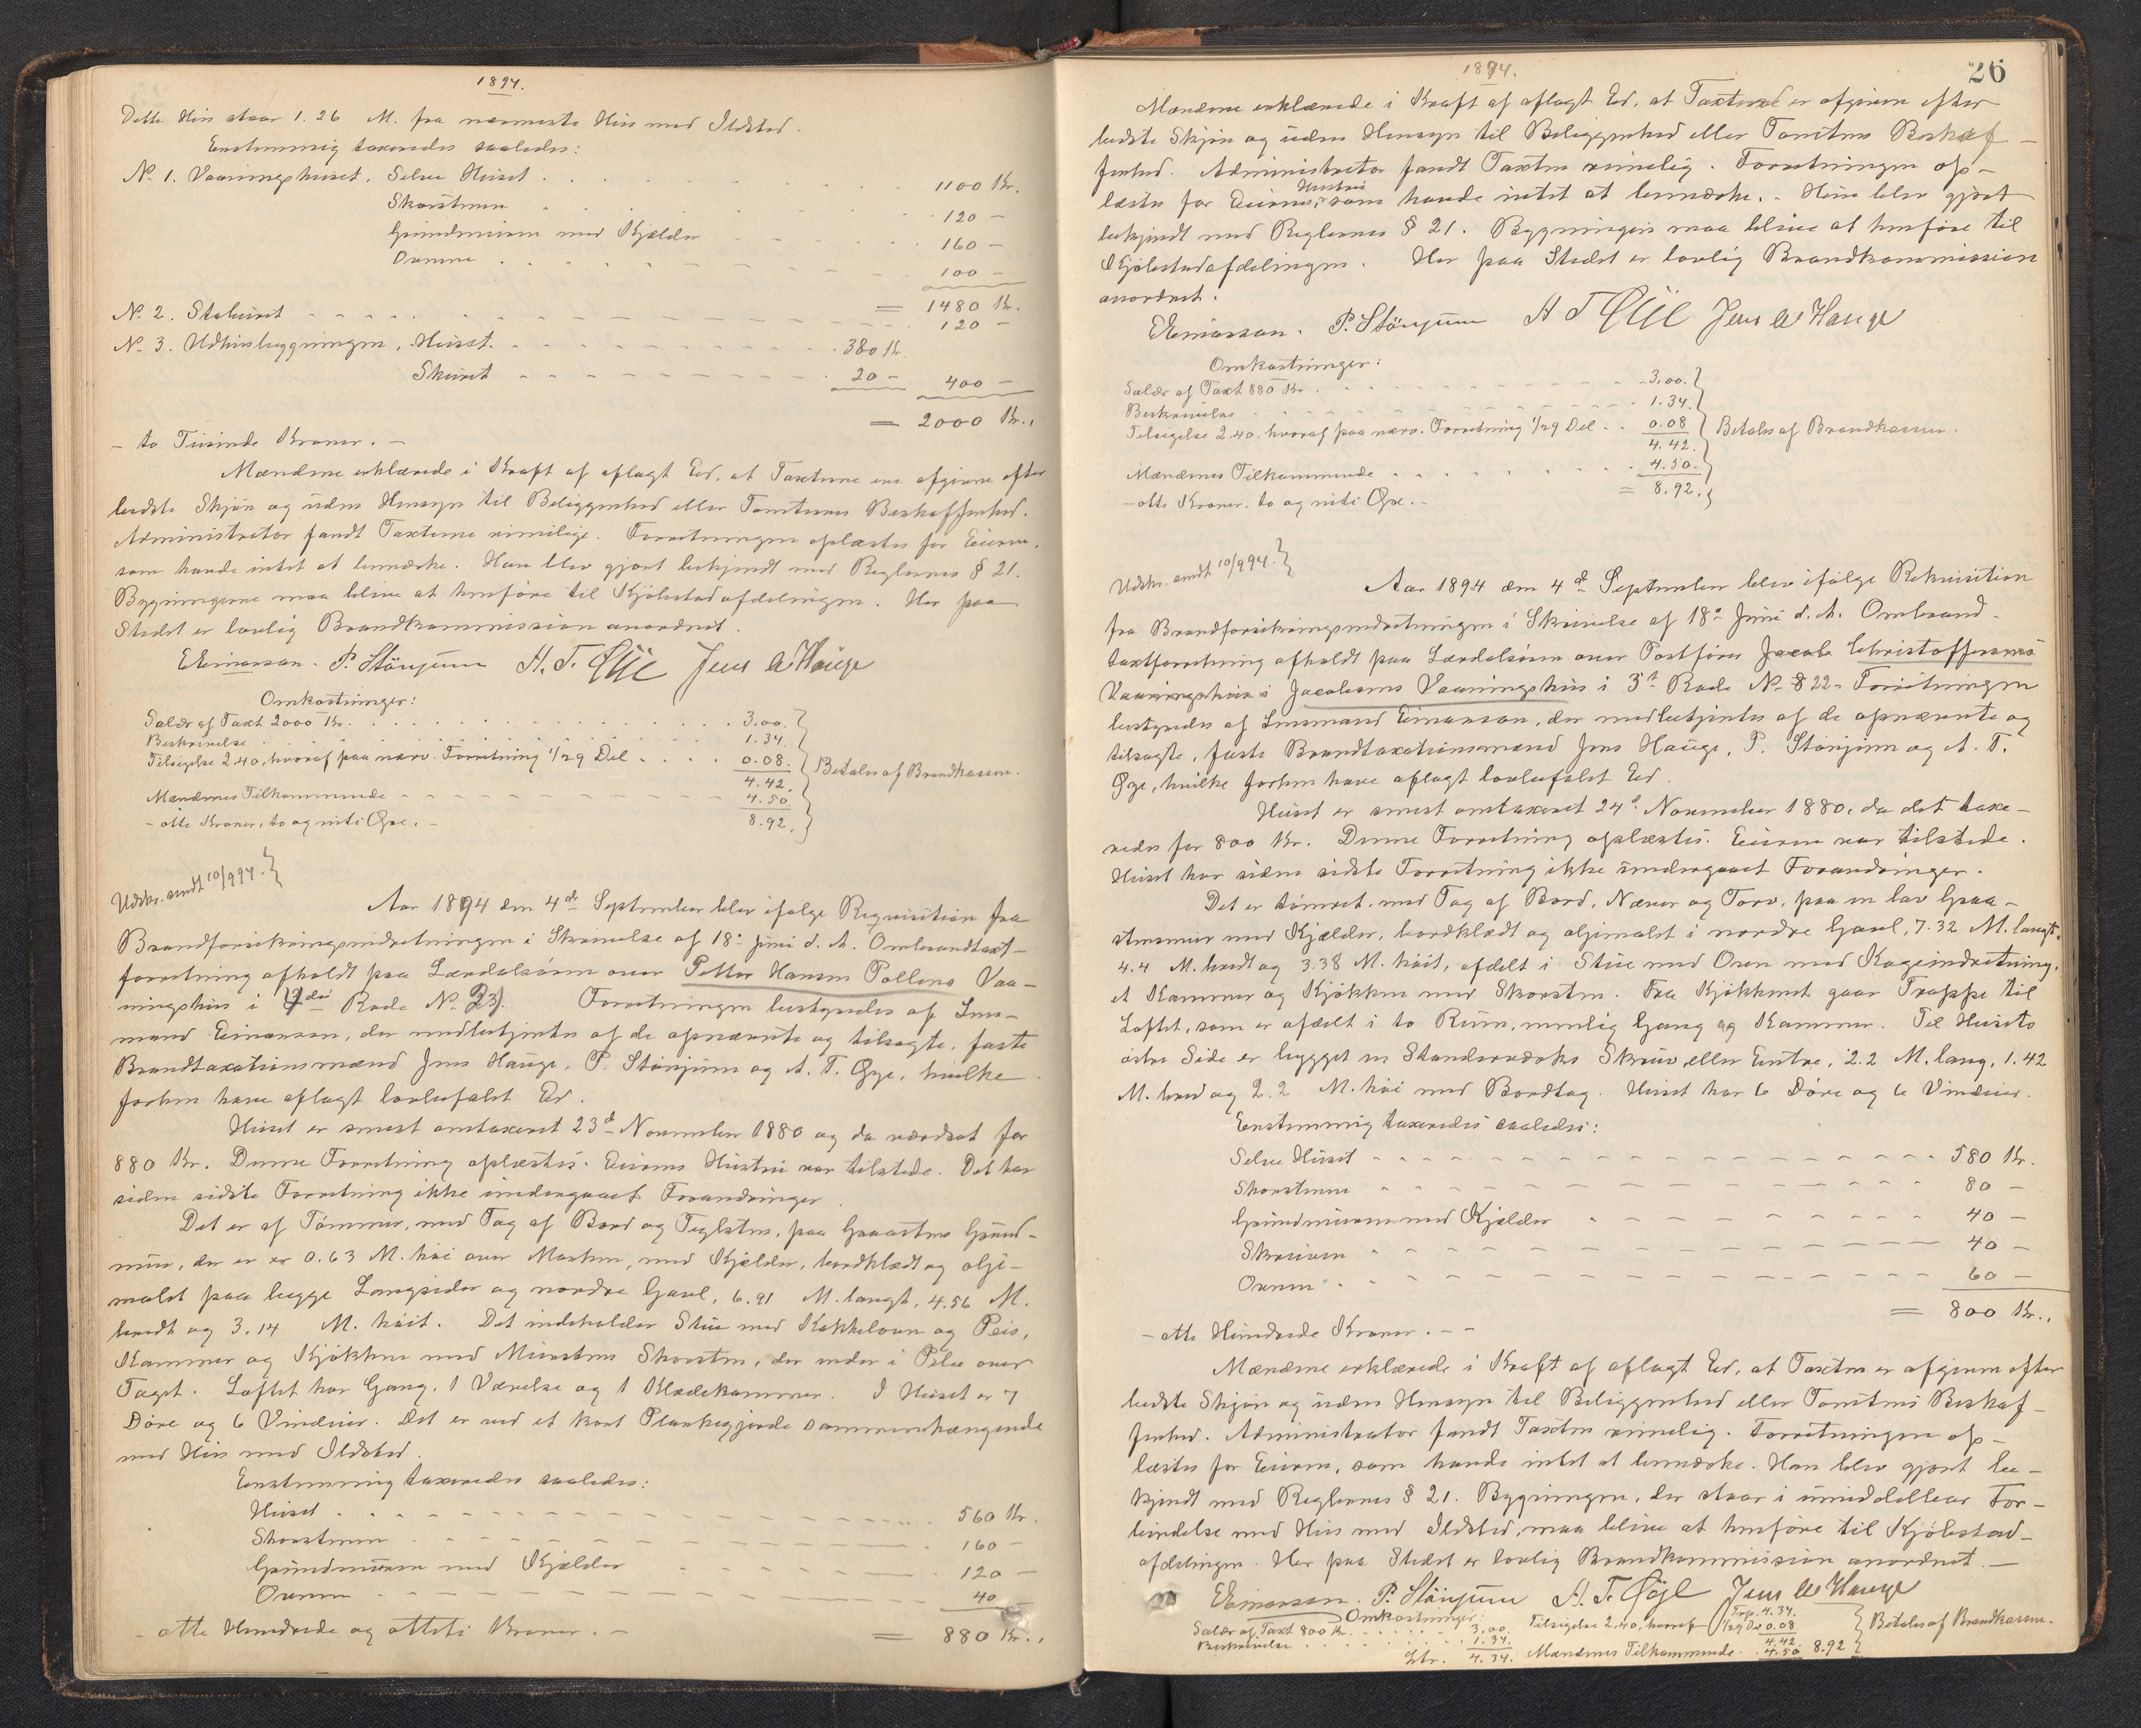 1894.
Dette Hus staar 1.26 M. fra nærmeste Hus med Ildsted.
Enstemmig taxeredes saaledes:
No 1. Vaaningshuset. Selve Huset . . . 1100 Kr.
Skorstenen . . . 120 –
Grundmuren med Kjælder – – – 160 –
Ovnene . . . 100 –
= 1480 Kr.
No 2. Stalhuset – – – 120 –
No 3. Udhusbygningen, Huset. – – – 380 Kr.
Skuret – – – 20 – 400 –
= 2000 Kr.,
– to Tusinde Kroner. –
Mændene erklærede i Kraft af aflagt Ed, at Taxterne ere afgivne efter
bedste Skjøn og uden Hensyn til Beliggenhed eller Tomternes Beskaffenhed.
Administrator fandt Taxterne rimelige. Forretningen oplæstes for Eieren,
som havde intet at bemærke. Han blev gjort bekjendt med Reglernes § 21.
Bygningerne maa blive at henføre til Kjøbstadafdelingen. Her paa
Stedet er lovlig Brandkommission anordnet.
E Eimanson. P. Stönjum A. T. Øije Jens A Hauge
Omkostninger:
Salær af Taxt 2000 Kr. . . . 3.00.
Beskrivelse . . . 1.34.
Tilsigelse 2.40, hvoraf paa nærv. Forretning 1/29 Del . . . 0.08. } Betales af Brandkassen.
4.42.
Mændenes Tilkommende – – – 4.50
– otte Kroner, to og niti Øre. – 8.92.
Udskr. sendt 10/9 94.
Aar 1894 den 4de September blev ifølge Reqvisition fra
Brandforsikringsindretningen i Skrivelse af 18de Juni d. A. Ombrandtaxt-
forretning afholdt paa Lærdalsøren over Petter Hansen Pollens Vaa-
ningshus i 2den Rade No 23. Forretningen bestyredes af Lens-
mand Eimanson, der medbetjentes af de opnævnte og tilsagte, faste
Brandtaxationsmænd Jens Hauge, P. Stönjum og A. T. Øye, hvilke
forhen have aflagt lovbefalet Ed.
Huset er senest omtaxeret 23de November 1880 og da værdsat for
880 Kr. Denne Forretning oplæstes. Eierens Hustru var tilstede. Det har
siden sidste Forretning ikke undergaaet Forandringer.
Det er af Tømmer, med Tag af Bord og Teglsten, paa Graastens Grund-
mur, der er 0.63 M. høi over Marken, med Kjælder, bordklædt og olje-
malet paa begge Langsider og nordre Gavl, 6.91 M. langt, 4.56 M.
bredt og 3.14 M. høit. Det indeholder Stue med Kakkelovn og Peis,
Kammer og Kjøkken med Murstens Skorsten, der ender i Pibe over
Taget. Loftet har Gang, 1 Værelse og 1 Klædekammer. I Huset er 7
Døre og 6 Vinduer. Det er ved et kort Plankegjerde sammenhængende
med Hus med Ildsted.
Enstemmig taxeredes saaledes:
Huset . . . 560 Kr.
Skorstenen – – – 160 –
Grundmuren med Kjælder – – – 120 –
Ovnen – – – 40
– otte Hundrede og otteti Kroner. – = 880 Kr.,
1894. 26
Mændene erklærede i Kraft af aflagt Ed, at Taxten er afgiven efter
bedste Skjøn og uden Hensyn til Beliggenhed eller Tomtens Beskaf-
fenhed. Administrator fandt Taxten rimelig. Forretningen op-
læstes for Eierens Hustru, som havde intet at bemærke. – Hun blev gjort
bekjendt med Reglernes § 21. Bygningen maa blive at henføre til
Kjøbstadafdelingen. Her paa Stedet er lovlig Brandkommission
anordnet.
E Eimanson. P. Stönjum A T Øije Jens A Hauge
Omkostninger:
Salær af Taxt 880 Kr . . . 3.00.
Beskrivelse . . . 1.34.
Tilsigelse 2.40, hvoraf paa nærv. Forretning 1/29 Del . . 0.08 } Betales af Brandkassen.
4.42.
Mændenes Tilkommende . . . 4.50.
– otte Kroner, to og niti Øre. – = 8.92.
Udskr. sendt 10/9 94.
Aar 1894 den 4de September blev ifølge Rekvisition
fra Brandforsikringsindretningen i Skrivelse af 18de Juni d. A. Ombrand-
taxtforretning afholdt paa Lærdalsøren over Postfører Jacob Christoffersens
Vaaningshus i Jacobsens Vaaningshus i 3die Rade No 22. Forretningen
bestyredes af Lensmand Eimanson, der medbetjentes af de opnævnte og
tilsagte, faste Brandtaxationsmænd Jens Hauge, P. Stönjum og A. T.
Øye, hvilke forhen have aflagt lovbefalet Ed.
Huset er senest omtaxeret 24de November 1880, da det taxe-
redes for 800 Kr. Denne Forretning oplæstes. Eieren var tilstede.
Huset har siden sidste Forretning ikke undergaaet Forandringer.
Det er tømret, med Tag af Bord, Næver og Torv, paa en lav Graa-
stensmur med Kjælder, bordklædt og oljemalet i nordre Gavl, 7.32 M. langt,
4.4 M. bredt og 3.38 M. høit, afdelt i Stue med Ovn med Kogeindretning,
et Kammer og Kjøkken med Skorsten. Fra Kjøkkenet gaar Trappe til
Loftet, som er afdelt i to Rum, nemlig Gang og Kammer. Til Husets
østre Side er bygget en Standværks Skruv eller Entre, 2.2 M. lang, 1.42
M. bred og 2.2 M. høi med Bordtag. Huset har 6 Døre og 6 Vinduer.
Enstemmig taxeredes saaledes:
Selve Huset – – – 580 Kr.
Skorstenen – – – 80 –
Grundmuren med Kjælder – – – 40 –
Skruven – – – 40 –
Ovnen – – – 60 –
= 800 Kr.,
– otte Hundrede Kroner. – –
Mændene erklærede i Kraft af aflagt Ed, at Taxten er afgiven efter
bedste Skjøn og uden Hensyn til Beliggenhed eller Tomtens Beskaf-
fenhed. Administrator fandt Taxten rimelig. Forretningen op-
læstes for Eieren, som havde intet at bemærke. Han blev gjort be-
kjendt med Reglernes § 21. Bygningen, der staar i umiddelbar For-
bindelse med Hus med Ildsted, maa blive at henføre til Kjøbstad-
afdelingen. Her paa Stedet er lovlig Brandkommission anordnet. –
E Eimanson. P. Stönjum A. T. Øije Jens A Hauge
Omkostninger:
Salær af Taxt 800 Kr. . . . 3.00. Tilsigelse 2.40, hvoraf 1/29 Del 0.08 Trp. 4.34. } Betales af Brandkassen.
Beskrivelse . . . 1.34. 4.42.
Ltr. 4.34. Mændenes Tilkommende . . 4.50 8.92